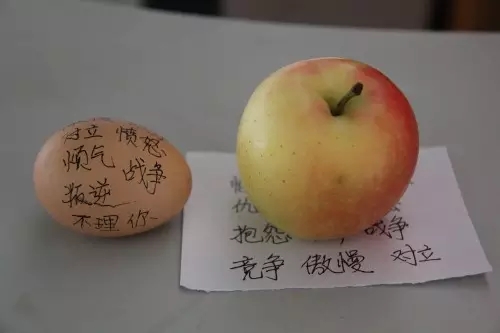 对立 愤怒
气 战争
叛逆
不理你
仇
抱怨 战争
竞争 傲慢 对立